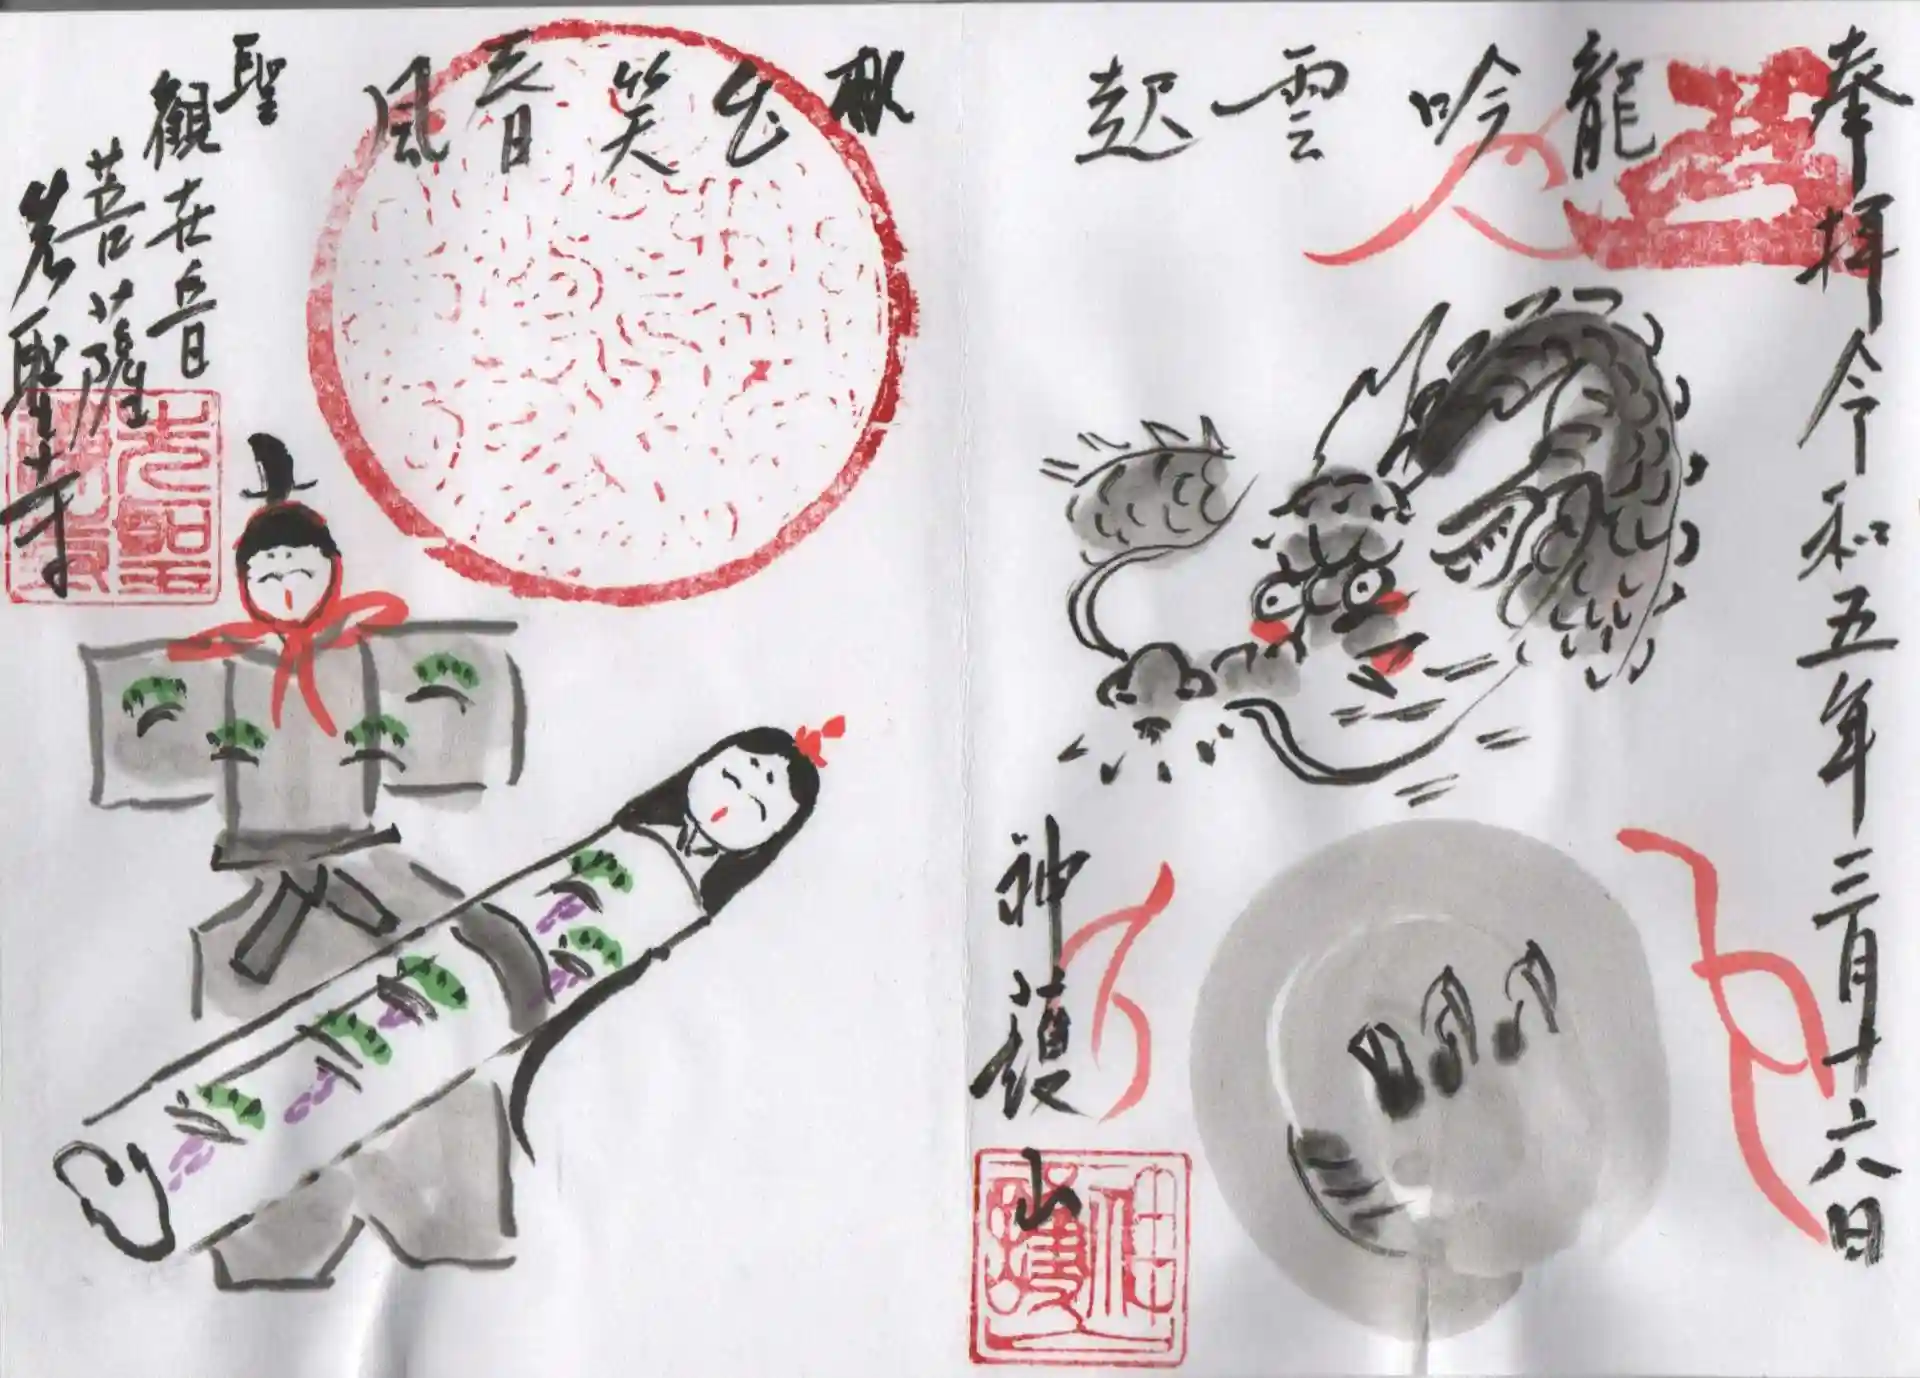 奉拝令和五年三月十六日
龍吟雲起
神護山
桃花笑春風
聖
觀世音
菩薩
光聖寺